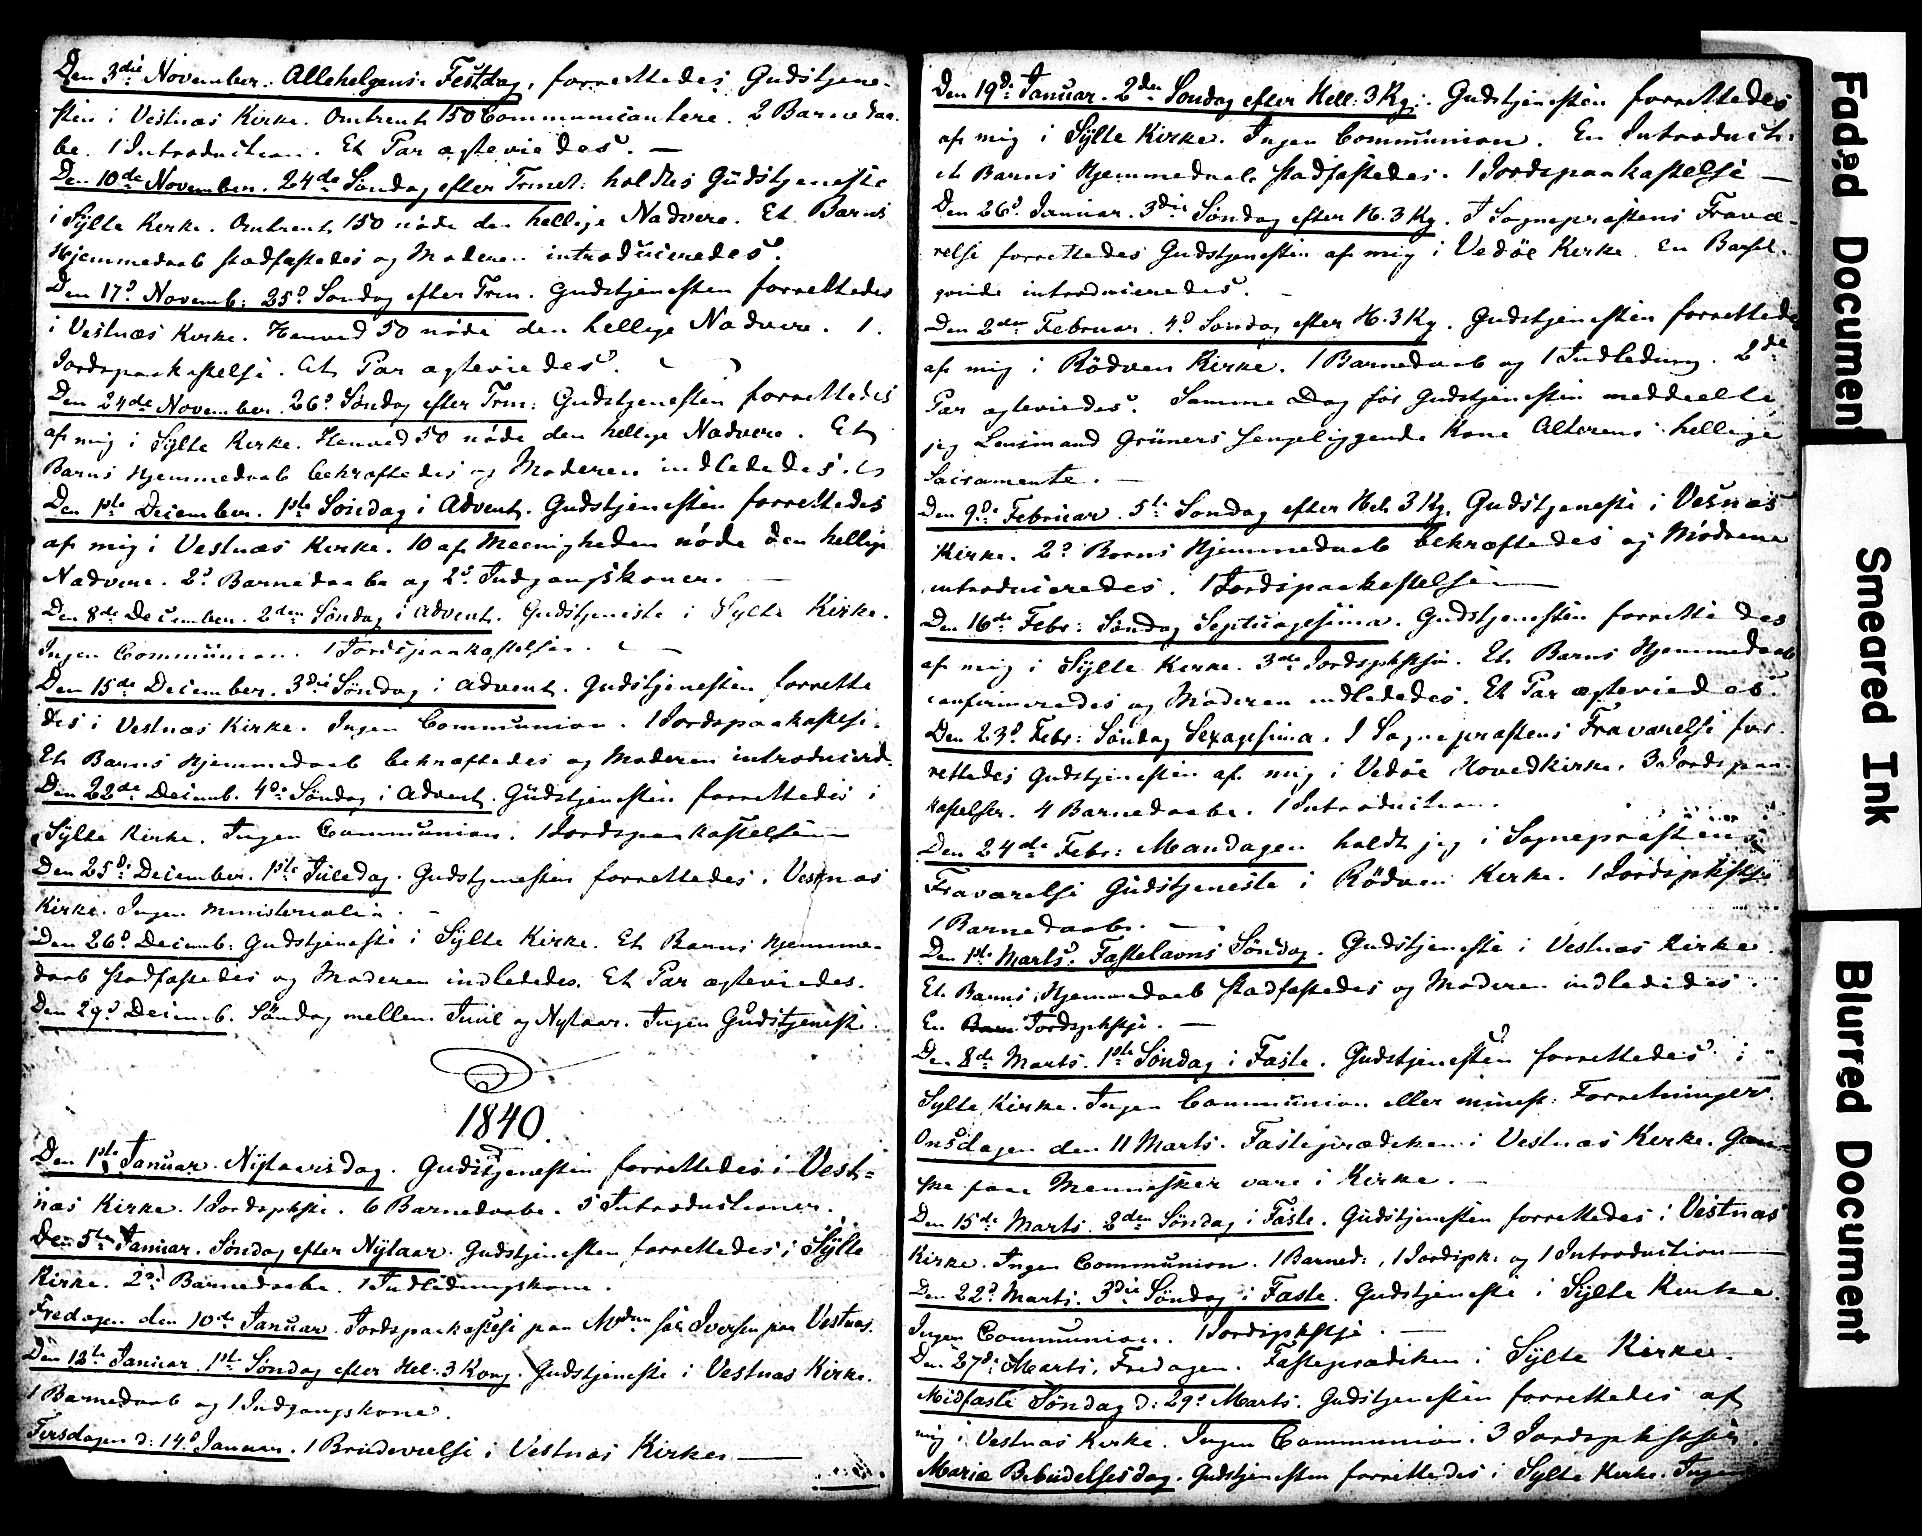 Den 3die November. Allehelgens-Festdag, forrettedes Gudstjene-
sten i Vestnæs Kirke. Omtrent 150 Communicantere. 2 Barnedaa-
be. 1 Introduction. Et Par ægteviedes. —
Den 10de November. 24de Søndag efter Trinet: holdtes Gudstjeneste
i Sylte Kirke. Omtrent 150 nöde den hellige Nadvere. Et Barns
Hjemmedaab stadfæstedes og Moderen introduceredes.
Den 17d Novemb: 25d Søndag efter Trin. Gudstjenesten forrettedes
i Vestnæs Kirke. Henved 50 nöde den hellige Nadvere. 1.
Jordspaakastelse. Et Par ægteviedes.
Den 24de November. 26d Søndag efter Trin: Gudstjenesten forrettedes
af mig i Sylte Kirke. Henved 50 nöde den hellige Nadvere. Et
Barns Hjemmedaab bekræftedes og Moderen indledede s.
Den 1ste December. 1ste Søndag i Advent. Gudstjenesten forrettedes
af mig i Vestnæs Kirke. 10 af Meenigheden nöde den hellige
Nadvere. 2d Barnedaabe og 2d Indgangskoner. —
Den 8de December. 2den Søndag i Advent. Gudstjeneste i Sylte Kirke.
Ingen Communion. 1 Jordspaakastelse. —
Den 15de December. 3die Søndag i Advent. Gudstjenesten forrette
des i Vestnæs Kirke. Ingen Communion. 1 Jordspaakastelse.
Et Barns Hjemmedaab bekræftedes og Moderen introducered.
Den 22de Decemb. 4de Søndag i Advent. Gudstjenesten forrettedes i
Sylte Kirke. Ingen Communion. 1 Jordspaakastelse —
Den 25d December. 1ste Juledag. Gudstjenesten forrettedes i Vestnæs
Kirke. Ingen Ministerialia. —
Den 26d Decemb: Gudstjeneste i Sylte Kirke. Et Barns Hjemme-
daab stadfæstedes og Moderen indlededes. Et Par ægteviedes.
Den 29d Decemb. Søndag mellem Juul og Nytaar. Ingen Gudstjenest.
1840.
Den 1ste Januar. Nytaarsdag. Gudstjenesten forrettedes i Vest=
næs Kirke. 1 Jordspkste. 6 Barnedaabe. 5 Introductioner.
Den 5te Januar. Søndag efter Nytaar. Gudstjenesten forrettedes i Sylte
Kirke. 2d Barnedaabe. 1 Indledningskone.
Fredagen den 10de Januar. Jordspaakastelse paa Iversen paa Vestnæs.
Den 12te Januar. 1ste Søndag efter Hel: 3 Kong. Gudstjeneste i Vestnæs Kirke.
1 Barnedaab og 1 Indgangskone.
Tirsdagen d: 14d Januar. 1 Brudevielse i Vestnæs Kirke. —
Den 19de Januar. 2den Søndag efter Hell: 3 Kg:. Gudstjenesten forrettedes
af mig i Sylte Kirke. Ingen Communion. En Introduct:
et Barns Hjemmedaab stadfæstedes. 1 Jordspaakastelse —
Den 26d Januar. 3die Søndag efter H. 3 Kg. I Sognepræstens Fravæ-
relse forrettedes Gudstjenesten af mig i Vedöe Kirke. En Barsel-
qvinde introduceredes. —
Den 2den Februar. 4d Søndag efter H. 3 Kg. Gudstjenesten forrettedes
af mig i Rödven Kirke. 1 Barnedaab og 1 Indledning. 2de
Par ægteviedes. Samme Dag før Gudstjenesten meddeelte
jeg Lensmand Grüners sengeliggende Kone Alterens hellige
Sacramente. —
Den 9de Februar. 5te Søndag efter Hel. 3 Kg. Gudstjeneste i Vesnæs
Kirke. 2d Börns Hjemmedaab bekræftedes og Mödrene
introduceredes. 1 Jordspaakastelse —
Den 16de Febr: Søndag Septuagesima. Gudstjenesten forrette des
af mig i Sylte Kirke. 3de Jordspkstse. Et Barns Hjemmedaab
confirmeredes og Moderen indlededes. Et Par ægteviedes.
Den 23d Febr: Søndag Sexagesima. I Sognepræstens Fraværelse for-
rettedes Gudstjenesten af mig i Vedöe Hovedkirke. 3 Jordspaa-
kastelser. 4 Barnedaabe. 1 Introduction.
Den 24de Febr: Mandagen holdt jeg i Sognepræstens
Fraværelse Gudstjeneste i Rödven Kirke. 1 Jordspkstse
1 Barnedaab. —
Den 1ste Marts. Fastelavns Søndag. Gudstjeneste i Vestnæs Kirke.
Et Barns Hjemmedaab stadfæstedes og Moderen indlededes.
En Jordspkstse. —
Den 8de Marts. 1ste Søndag i Faste. Gudstjenesten forrettedes i
Sylte Kirke. Ingen Communion eller minest: Forretninger.
Onsdagen den 11 Marts. Fasteprædiken i Vestnæs Kirke. Gan-
ske faae Mennesker vare i Kirke. —
Den 15de Marts. 2den Søndag i Faste. Gudstjenesten forrettedes i Vestnæs
Kirke. Ingen Communion. 1 Barned:, 1 Jordspk: og 1 Introduction —
Den 22d Marts. 3die Søndag i Faste. Gudstjeneste i Sylte Kirke.
Ingen Communion. 1 Jordspkstse. —
Den 27d: Marts, Fredagen. Fasteprædiken i Sylte Kirke.
Midfaste Søndag d: 29d Marts. Gudstjenesten forrettedes af
mig i Vestnæs Kirke. Ingen Communion. 3 Jordspkstser.
Mariæ Bebudelsesdag. Gudstjenesten forrettedes i Sylte Kirke. Ingen
Faded Document
Smeared Ink
Blurred Document